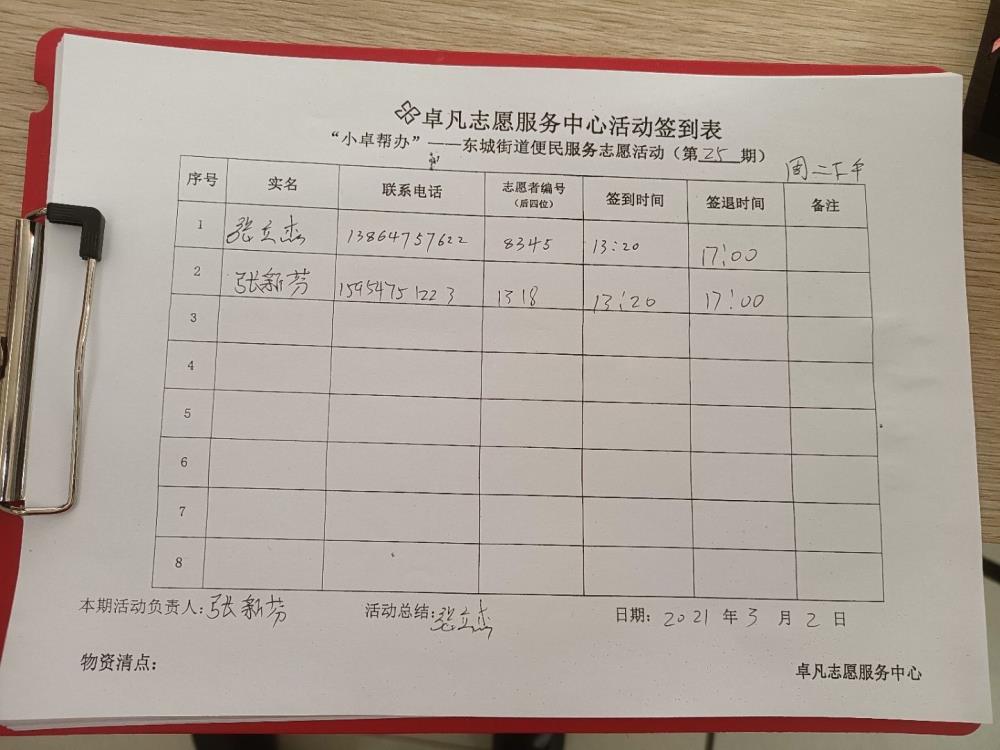 卓凡志愿服务中心活动签到表
“小卓帮办”——东城街道便民服务志愿活动（第25期）
周二下午
序号 实名 联系电话 志愿者编号（后四位） 签到时间 签退时间 备注
1 张立杰 13864757622 8345 13:20 17:00
2 张新芬 15954751223 1318 13:20 17:00
3
4
5
6
7
8
本期活动负责人:张新芬 活动总结:张立杰 日期: 2021 年 3 月 2 日
物资清点: 卓凡志愿服务中心